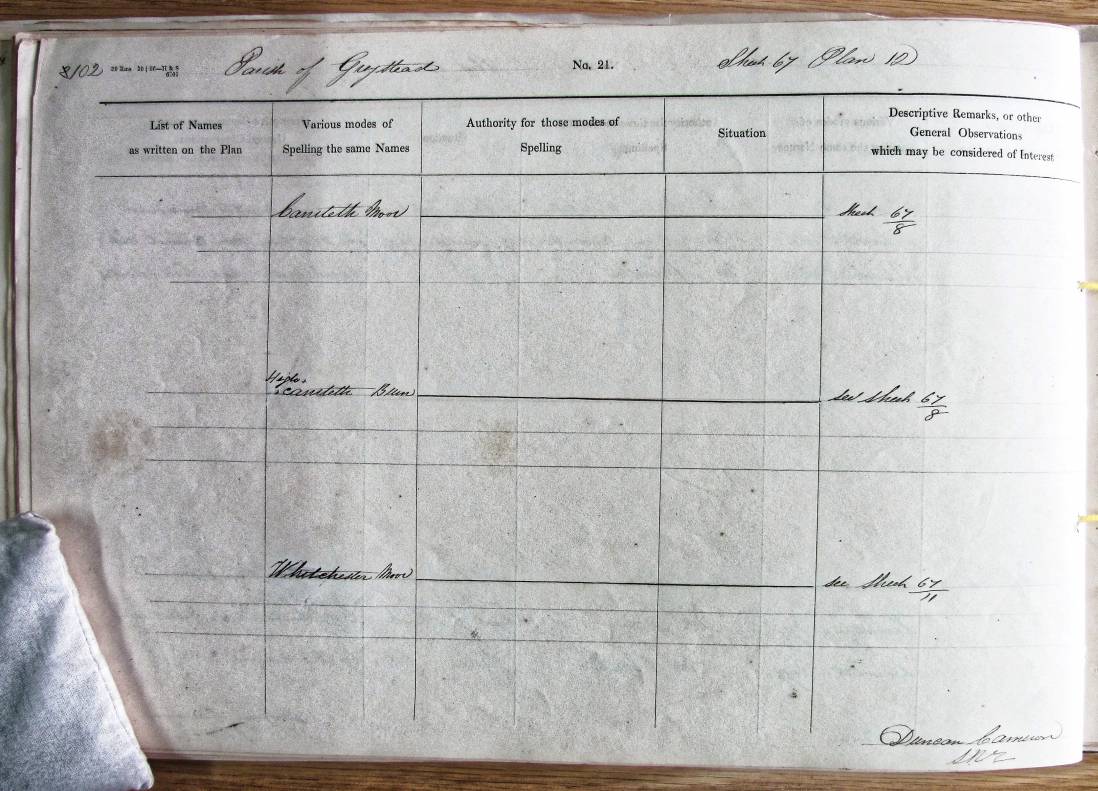 8102
Parish of Greystead
No. 21.
Sheet 67 Plan 12
List of Names
as written on the Plan
Various modes of
Spelling the same Names
Authority for those modes of
Spelling
Situation
Descriptive Remarks, or other
General Observations
which may be considered of Interest
Camsteth Moor
Sheet 67/8
High
Camsteth Burn
see Sheet 67/8
Whitchester Moor
see Sheet 67/11
Duncan Cameron